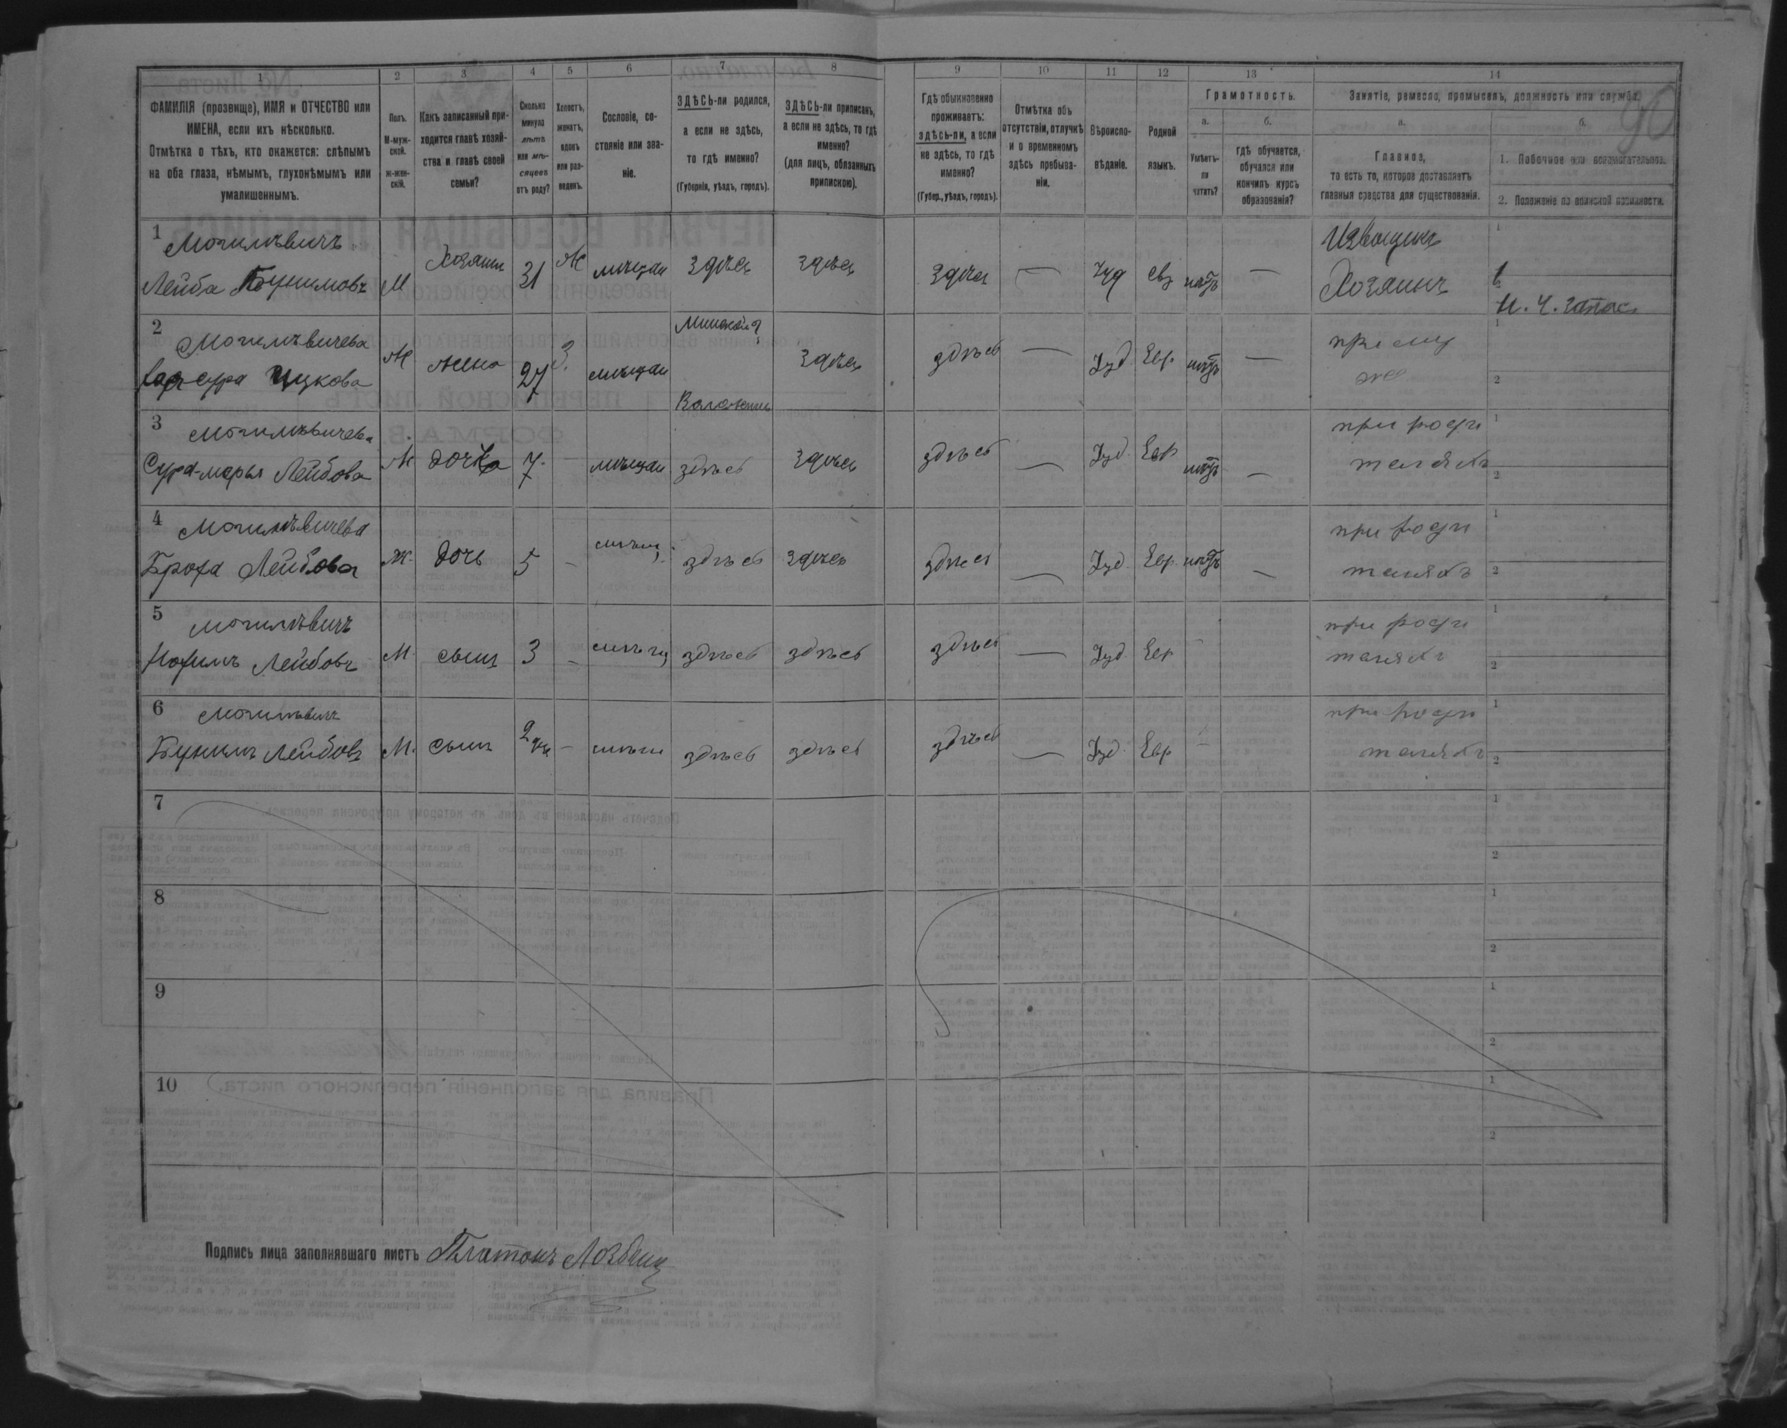 1 2 3 4 5 6 7 8 9 10 11 12 13 14
ФАМИЛІЯ (прозвище), ИМЯ и ОТЧЕСТВО или
ИМЕНА, если ихъ нѣсколько.
Отмѣтка о тѣхъ, кто окажется: слѣпымъ
на оба глаза, нѣмымъ, глухонѣмымъ или
умалишеннымъ.
Полъ.
М-муж-
ской.
Ж-жен-
скій.
Какъ записанный при-
ходится главѣ хозяй-
ства и главѣ своей
семьи?
Сколько
минуло
лѣтъ
или мѣ-
сяцевъ
отъ роду?
Холостъ,
женатъ,
вдовъ
или раз-
веденъ.
Сословіе, со-
стояніе или зва-
ніе.
ЗДѢСЬ-ли родился,
а если не здѣсь,
то гдѣ именно?
(Губернія, уѣздъ, городъ).
ЗДѢСЬ-ли приписанъ,
а если не здѣсь, то гдѣ
именно?
(для лицъ, обязанныхъ
припискою).
Гдѣ обыкновенно
проживаетъ:
здѣсь-ли, а если
не здѣсь, то гдѣ
именно?
(Губер., уѣздъ, городъ).
Отмѣтка объ
отсутствіи, отлучкѣ
и о временномъ
здѣсь пребыва-
ніи.
Вѣроиспо-
вѣданіе.
Родной
языкъ.
Грамотность.
а.
Умѣетъ-
ли
читать?
б.
Гдѣ обучается,
обучался или
кончилъ курсъ
образованія?
Занятіе, ремесло, промыселъ, должность или служба.
а.
Главное,
то есть то, которое доставляетъ
главныя средства для существованія.
б.
1. Побочное или вспомогательное.
2. Положеніе по воинской повинности.
90
1 Могилѣвичъ
Лейба Бунимовъ М Хозяинъ 31 Ж мѣщан здѣсь здѣсь здѣсь — Іуд Евр нѣтъ — Извощикъ
Хозяинъ
2 Могилѣвичева
Сура Ицкова Ж жена 27 З мѣщан Минской г здѣсь здѣсь — Іуд Евр нѣтъ — при муж
3 Могилѣвичева
Сура-Мерья Лейбова Ж дочка 7 — мѣщан здѣсь здѣсь здѣсь — Іуд Евр нѣтъ — при роди
теляхъ
4 Могилѣвичева
Броха Лейбова Ж. дочь 5 — мѣщ. здѣсь здѣсь здѣсь — Іуд Евр нѣтъ — при роди
теляхъ
5 Могилѣвичъ
Лейбовъ М сынъ 3 — мѣщ здѣсь здѣсь здѣсь — Іуд Евр - при роди
теляхъ
6 Могилѣвичъ
Бунимъ Лейбовъ М. сынъ — мѣщ здѣсь здѣсь здѣсь — Іуд Евр - при роди
теляхъ
7
8
9
10
Подпись лица заполнявшаго листъ Платонъ